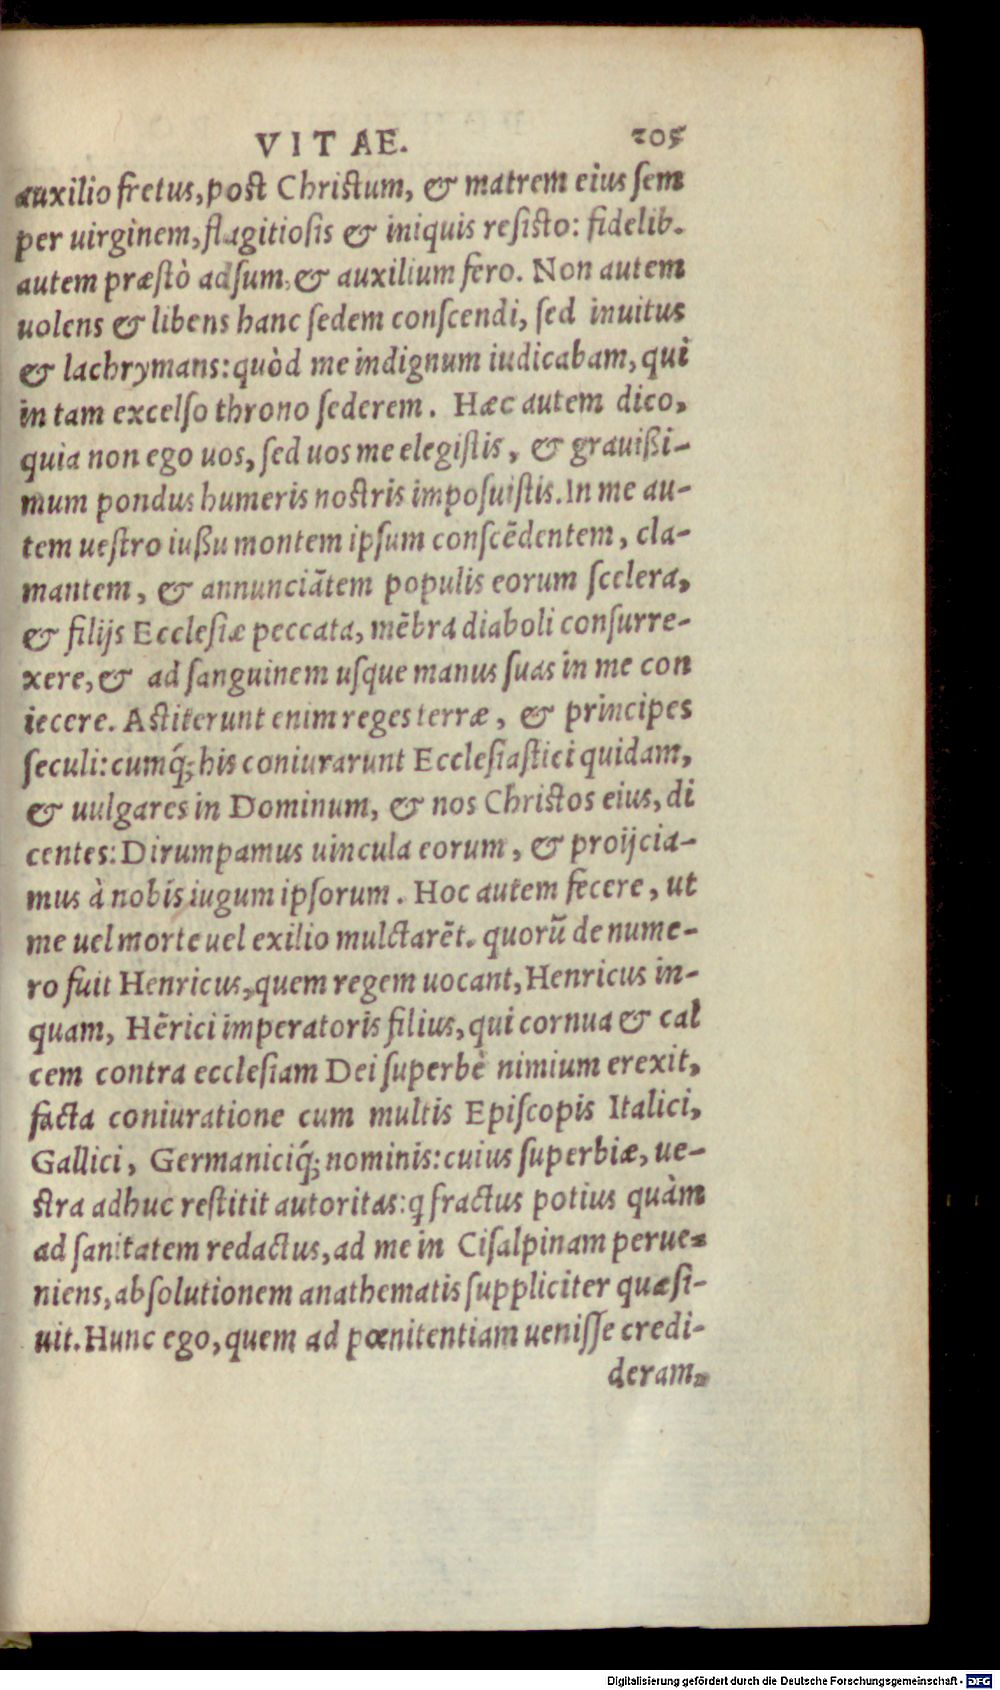 VITAE. 205
auxilio fretus, post Christum, & matrem eius sem
per uirginem, flagitiosis & iniquis resisto: fidelib.
autem præstò adsum, & auxilium fero. Non autem
uolens & libens hanc sedem conscendi, sed inuitus
& lachrymans: quòd me indignum iudicabam, qui
in tam excelso throno sederem. Hæc autem dico,
quia non ego uos, sed uos me elegistis, & grauißi-
mum pondus humeris nostris imposuistis. In me au-
tem uestro iußu montem ipsum conscẽdentem, cla-
mantem, & annunciãtem populis eorum scelera,
& filijs Ecclesiæ peccata, mẽbra diaboli consurre-
xere, & ad sanguinem usque manus suas in me con
iecere. Astiterunt enim reges terræ, & principes
seculi: cumq́; his coniurarunt Ecclesiastici quidam,
& uulgares in Dominum, & nos Christos eius, di
centes: Dirumpamus uincula eorum, & proijcia-
mus à nobis iugum ipsorum. Hoc autem fecere, ut
me uel morte uel exilio mulctarẽt. quorũ de nume-
ro fuit Henricus, quem regem uocant, Henricus in-
quam, Hẽrici imperatoris filius, qui cornua & cal
cem contra ecclesiam Dei superbè nimium erexit,
facta coniuratione cum multis Episcopis Italici,
Gallici, Germaniciq́; nominis: cuius superbiæ, ue-
stra adhuc restitit autoritas: q fractus potius quàm
ad sanitatem redactus, ad me in Cisalpinam perue-
niens, absolutionem anathematis suppliciter quæsi-
uit. Hunc ego, quem ad pœnitentiam uenisse credi-
deram,
Digitalisierung gefördert durch die Deutsche Forschungsgemeinschaft - DFG